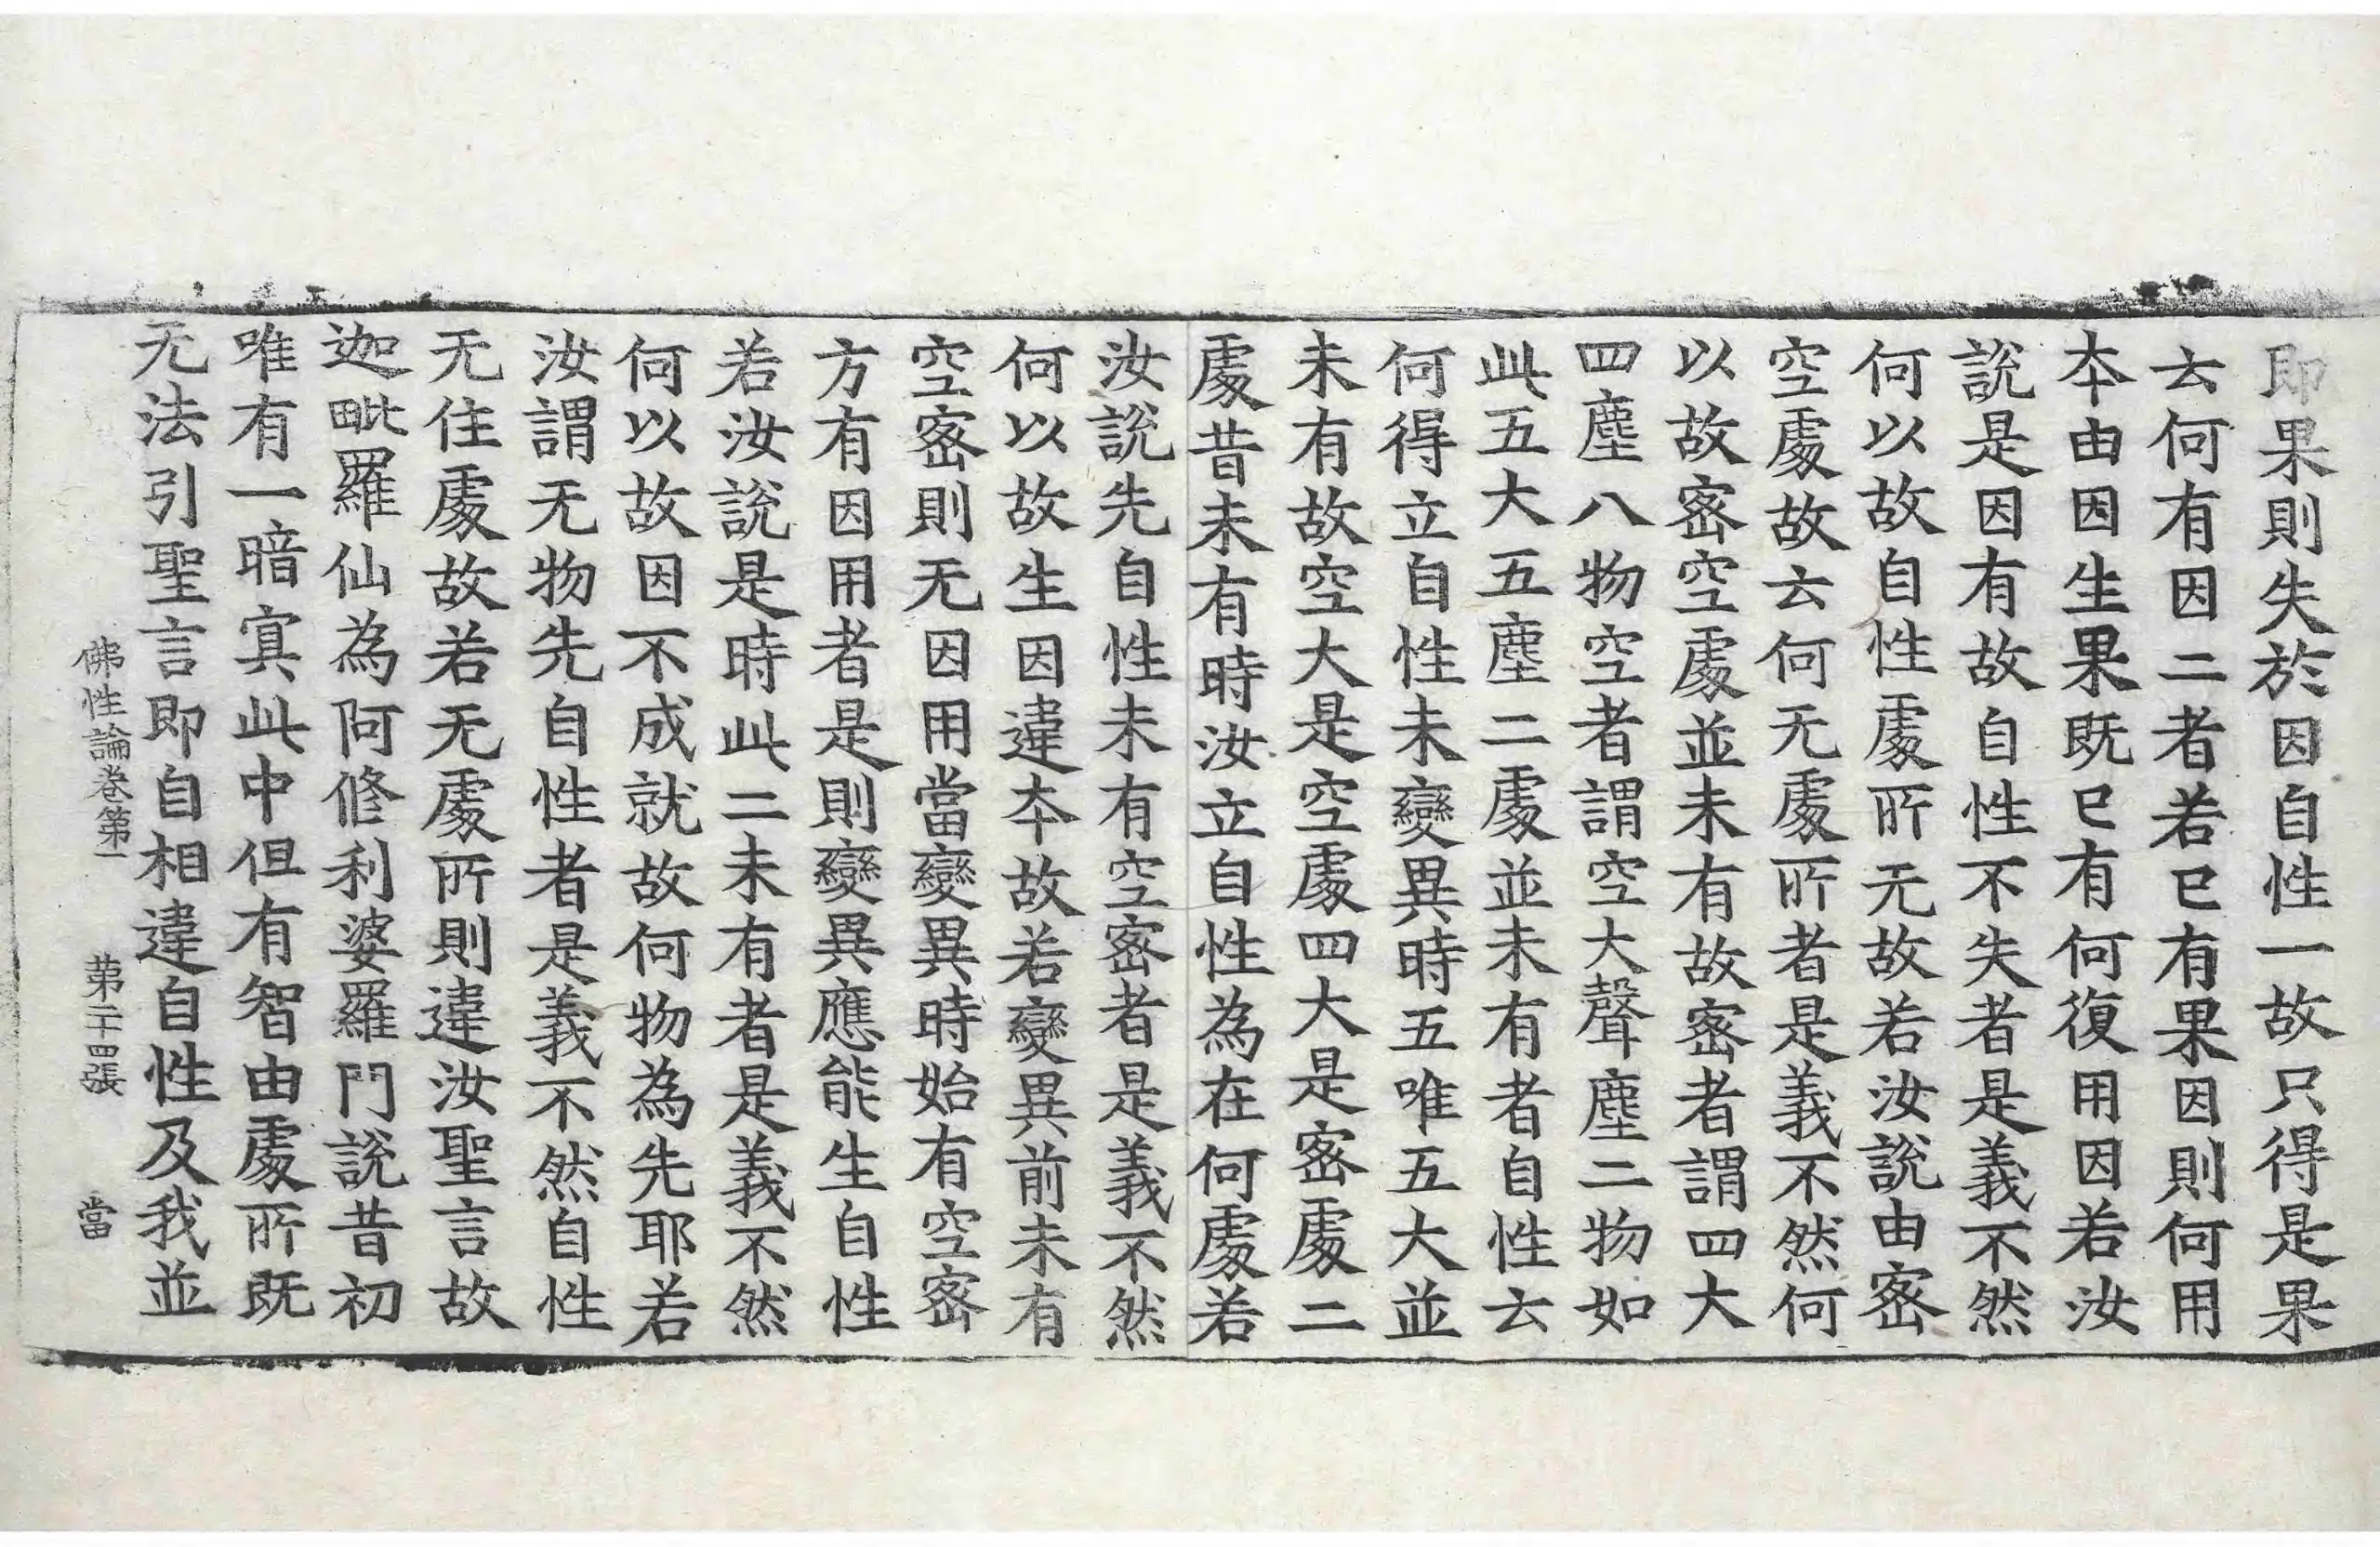 即果則失於因自性一故只得是果
云何有因二者若已有果因則何用
本由因生果既已有何復用因若汝
說是因有故自性不失者是義不然
何以故自性處所无故若汝說由密
空處故云何无處所者是義不然何
以故密空處並未有故密者謂四大
四塵八物空者謂空大聲塵二物如
此五大五塵二處並未有者自性云
何得立自性未變異時五唯五大並
未有故空大是空處四大是密處二
處昔未有時汝立自性為在何處若
汝說先自性未有空密者是義不然
何以故生因違本故若變異前未有
空密則无因用當變異時始有空密
方有因用者是則變異應能生自性
若汝說是時此二未有者是義不然
何以故因不成就故何物為先耶若
汝謂无物先自性者是義不然自性
无住處故若无處所則違汝聖言故
迦毗羅仙為阿修利婆羅門說昔初
唯有一暗冥此中但有智由處所既
无法引聖言即自相違自性及我並
佛性論卷第一 第二十四張 當